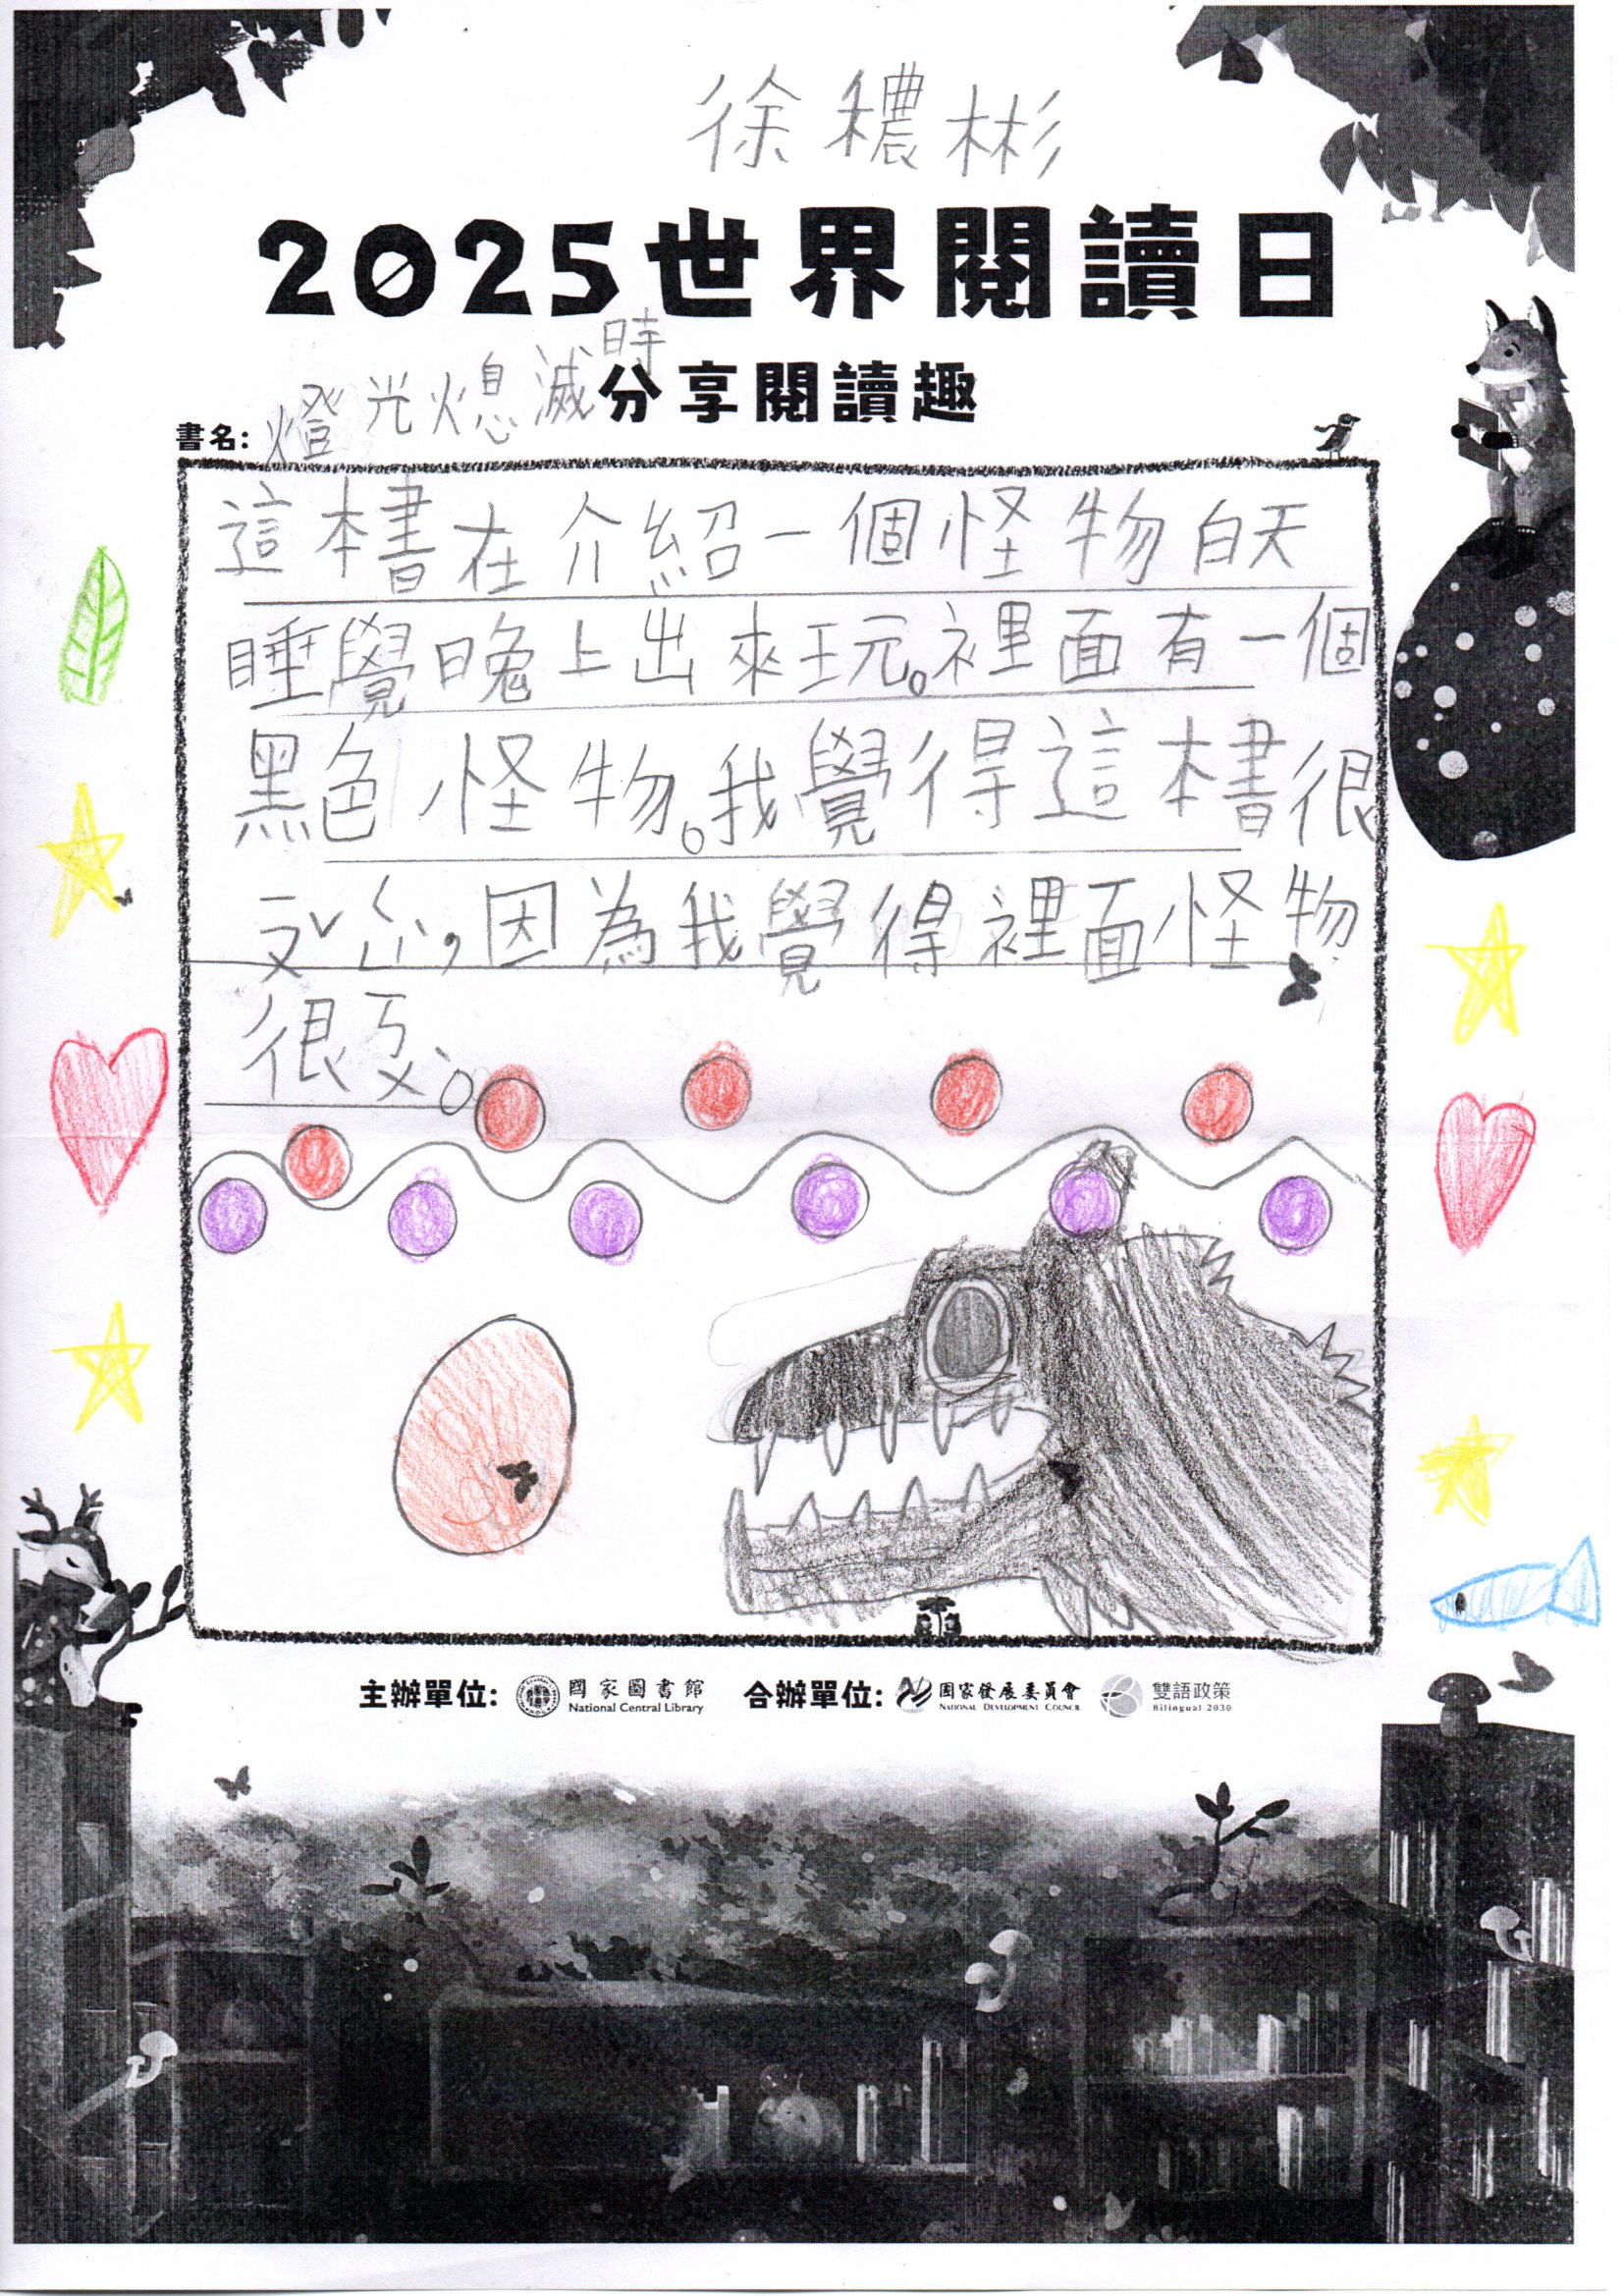 徐穠彬
2025世界閱讀日
分享閱讀趣
書名: 燈光熄滅時
這本書在介紹一個怪物白天
睡覺晚上出來玩。裡面有一個
黑色怪物。我覺得這本書很
ㄞˇ ㄒㄧㄣ,因為我覺得裡面怪物
很ㄞˋ。
主辦單位: 國家圖書館 National Central Library 合辦單位: 國家發展委員會 NATIONAL DEVELOPMENT COUNCIL 雙語政策 Bilingual 2030